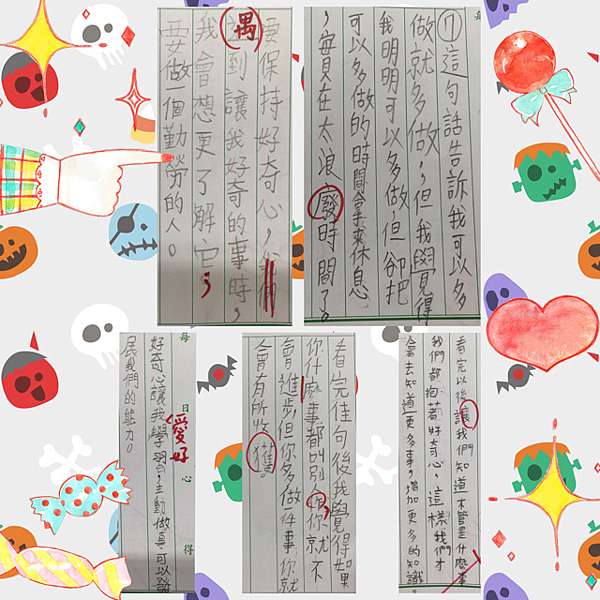 保持好奇心，
遇
到讓我好奇的事時，
我會想更了解它，
要做一個勤勞的人。
每
⑦這句話告訴我可以多
做就多做，但我覺得
我明明可以多做，但卻把
可以多做的時間拿來休息
，實在太浪廢時間了。
每日心得
愛好
好奇心讓我學習，主動做事可以發
民我們的能力。
看完佳句後我覺得如果
你什麼事都叫別 你就不
會進步，但你多做一件事，你就
會有所收獲。
看完以後讓我們知道不管是什麼事
我們都抱著好奇心，這樣我們才
會去知道更多事，增加更多的知識。